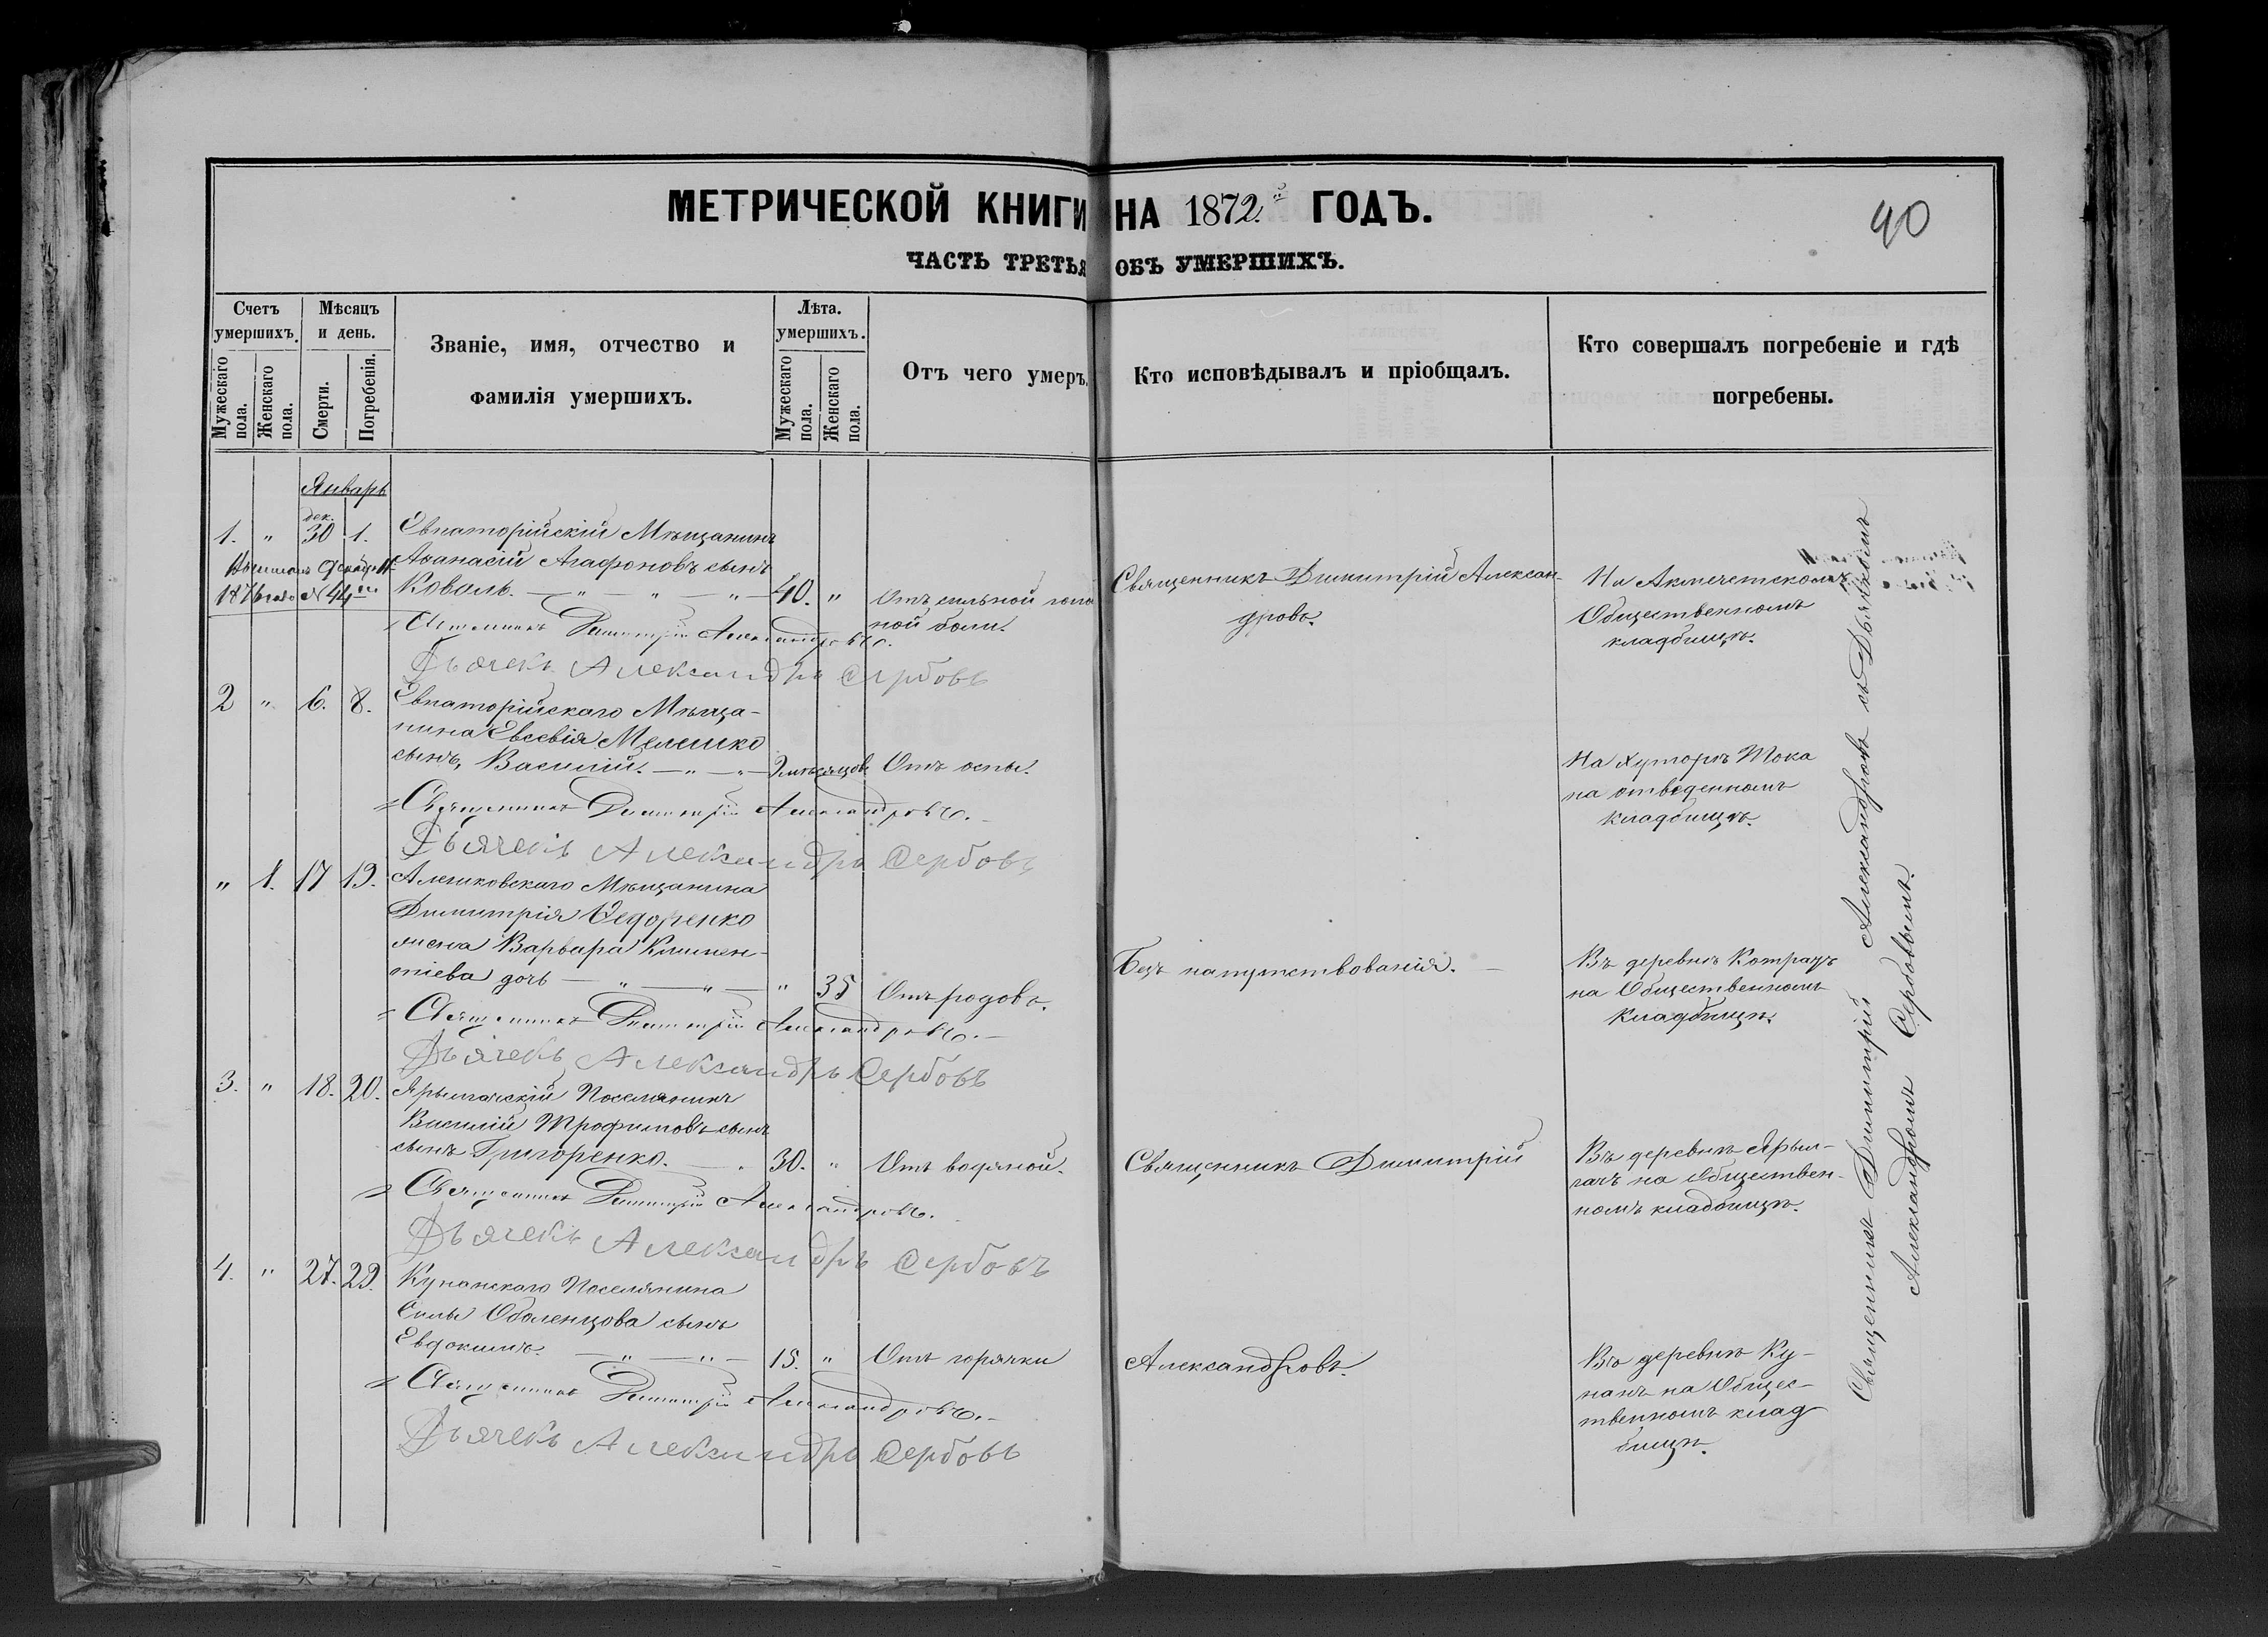 МЕТРИЧЕСКОЙ КНИГИ НА 1872.й ГОДЪ.
40
ЧАСТЬ ТРЕТЬЯ ОБЪ УМЕРШИХЪ.
Счетъ умершихъ.
Мужескаго пола.
Женскаго пола.
Мѣсяцъ и день.
Смерти.
Погребенія.
Званіе, имя, отчество и
фамилія умершихъ.
Лѣта. умершихъ.
Мужескаго пола.
Женскаго пола.
Отъ чего умеръ.
Кто исповѣдывалъ и пріобщалъ.
Кто совершалъ погребеніе и гдѣ
погребены.
Январь
дек.
1. " 30 1. Евпаторійскій Мѣщанинъ
Аѳанасій Агафоновъ сынъ
Коваль. — " — " — " — 40. " Отъ сильной голо
ной боли.
Священникъ Димитрій Алексан-
дровъ.
На Акмечетскомъ
Общественномъ
кладбищѣ.
44
Священникъ Димитрій Александровъ.
Дьячекъ Александръ Сербовъ
2 " 6. 8. Евпаторійскаго Мѣща-
нина Евсевія Мелешко
сынъ, Василій. — " — " — 2 мѣсяцовъ Отъ оспы.
На Хуторѣ Тока
на отведенномъ
кладбищѣ.
Священникъ Димитрій Александровъ.
Дьячекъ Александръ Сербовъ
" 1. 17 19. Алешковскаго Мѣщанина
Димитрія Ѳедоренко
жена Варвара Климен-
тіева дочь — " — " — " 35 Отъ родовъ.
Безъ напутствованія. —
Въ деревнѣ
на Общественномъ
Кладбищѣ.
Священникъ Димитрій Александровъ.
Дьячекъ Александръ Сербовъ
3. " 18. 20. Ярылгачскій Поселянинъ
Василій Трофимовъ сынъ
сынъ Григоренко. — 30. " Отъ водяной.
Священникъ Димитрій
Въ деревнѣ Ярыл-
гачъ на Обществен-
номъ кладбищѣ.
Священникъ Димитрій Александровъ.
Дьячекъ Александръ Сербовъ
4. " 27. 29. Кунанскаго Поселянина
Силы Оболенцова сынъ
Евдокимъ. — " — " — 15. " Отъ горячки
Александровъ.
Въ деревнѣ Ку-
нанъ на Общес-
твенномъ клад
бищѣ.
Священникъ Димитрій Александровъ.
Дьячекъ Александръ Сербовъ
Священникъ Димитрій Александровъ съ Дьячкомъ
Александромъ Сербовымъ.